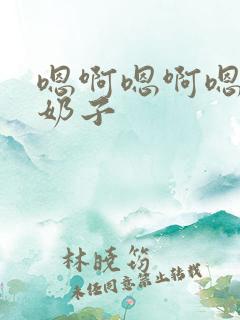 嗯啊嗯啊嗯
奶子
林晓筠
未经同意禁止转载